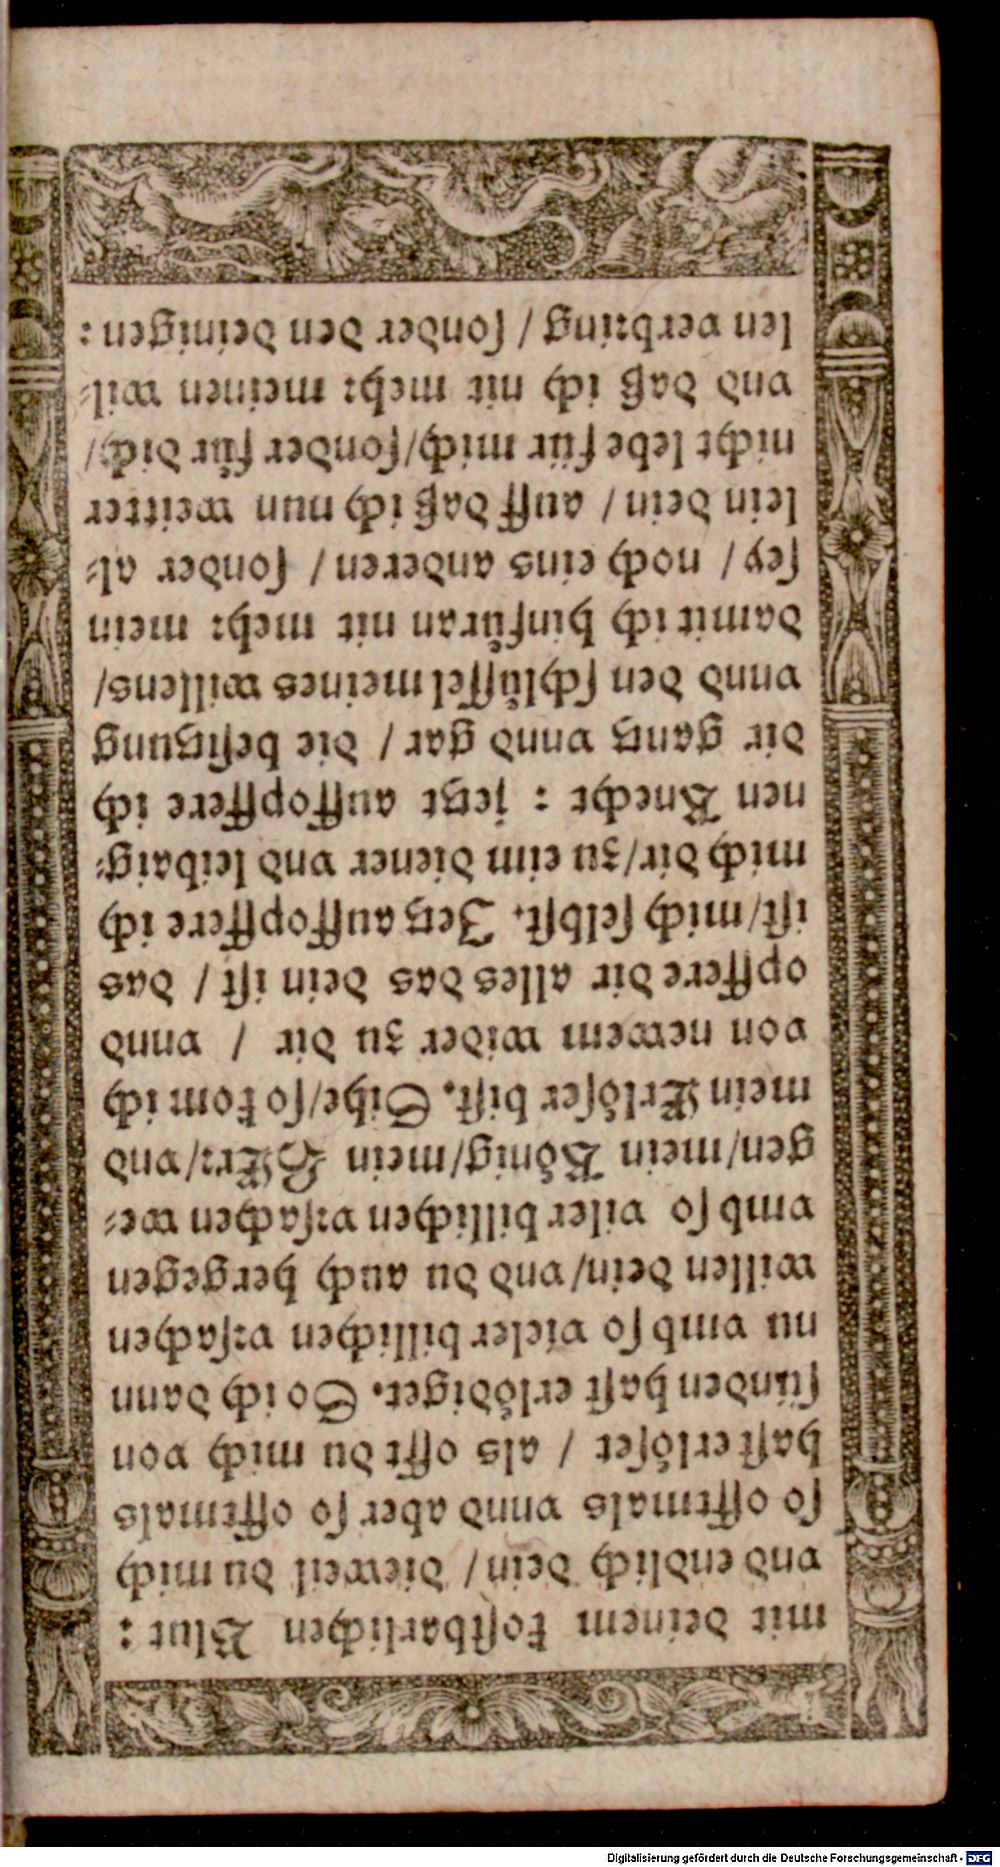 mit deinem kostbarlichen Blut :
vnd endlich dein / dieweil du mich
so offtmals vnnd aber so offtmals
hast erlöset / als offt du mich von
sünden hast erlödiget. So ich dann
nu vmb so vieler billichen vrsachen
willen dein/vnd du auch hergegen
vmb so viler billichen vrsachen we⸗
gen/mein König/mein HErr/vnd
mein Erlöser bist. Sihe/so kom ich
von newem wider zu dir / vnnd
opffere dir alles das dein ist / das
ist/mich selbst. Jetz auffopffere ich
mich dir/zu eim diener vnd leibaig⸗
nen Knecht : jetzt auffopffere ich
dir gantz vnnd gar / die besitzung
vnnd den schlüssel meines willens/
damit ich hinfüran nit mehr mein
sey / noch eins anderen / sonder al⸗
lein dein / auff daß ich nun weitter
nicht lebe für mich/sonder für dich/
vnd daß ich nit mehr meinen wil⸗
len verbring / sonder den deinigen :
Digitalisierung gefördert durch die Deutsche Forschungsgemeinschaft - DFG